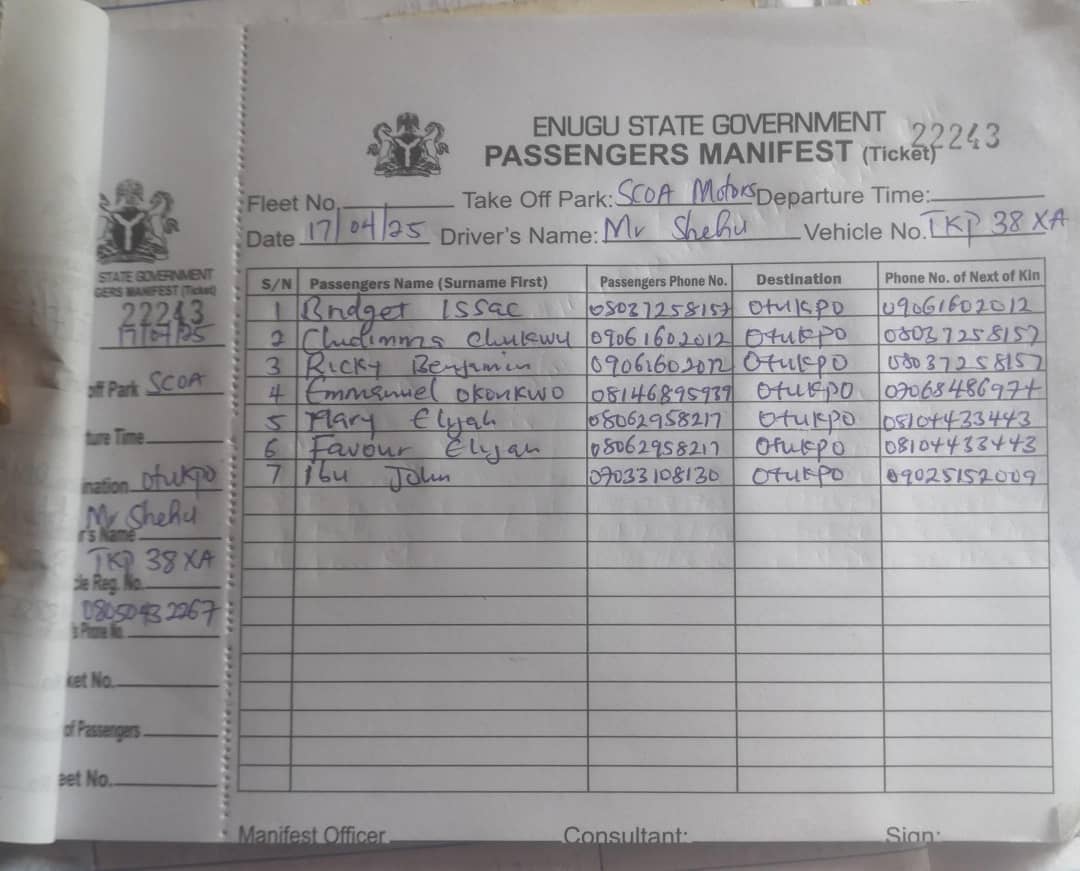 STATE GOVERNMENT
GERS MANIFEST (Ticket)
22243
17/04/25
off Park SCOA
ture Time
nation Otukpo
Mr Shehu
r's Name
TKP 38 XA
cle Reg. No.
08050432267
's Phone No.
ket No.
of Passengers
eet No.
ENUGU STATE GOVERNMENT
PASSENGERS MANIFEST (Ticket) 22243
Fleet No. Take Off Park: SCOA Motors Departure Time:
Date 17/04/25 Driver's Name: Mr Shehu Vehicle No. TKP 38 XA
S/N Passengers Name (Surname First) Passengers Phone No. Destination Phone No. of Next of Kin
1 Bridget Issac 08037258157 Otukpo 09061602012
2 Chidinma Chukwu 09061602012 Otukpo 08037258157
3 Ricky Benjamin 09061602012 Otukpo 08037258157
4 Emmanuel Okonkwo 08146895939 Otukpo 07068486974
5 Mary Elijah 08062958217 Otukpo 08104433443
6 Favour Elijah 08062958217 Otukpo 08104433443
7 Ibu John 07033108130 Otukpo 09025152009
Manifest Officer Consultant: Sign: